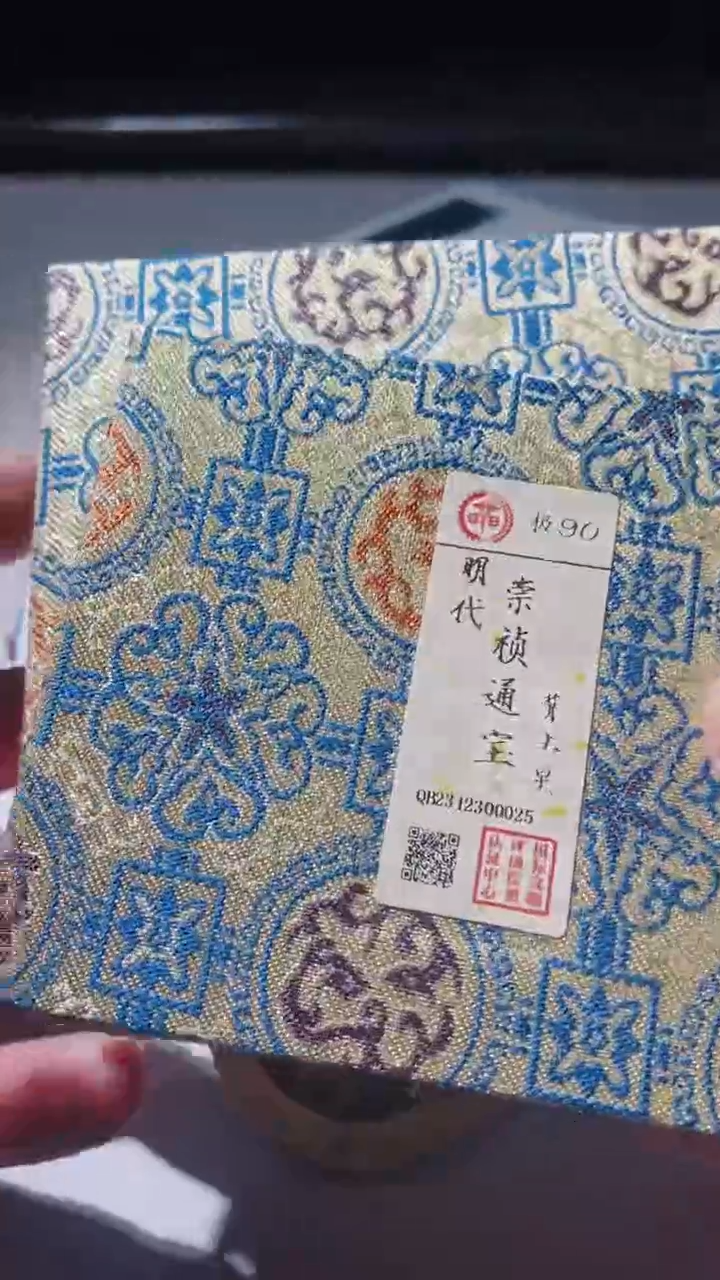 极90
明代
崇祯通宝
背大星
QB2312300025